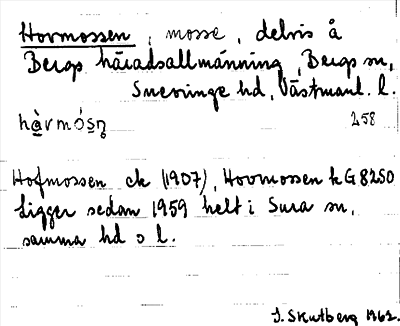 Hovmossen, mosse, delvis å
Bergs häradsallmänning, Bergs sn,
Snevringe hd, Västmanl. l.
hὰvmós̥n̥ 258
Hofmossen ek (1907), Hovmossen k G8250
Ligger sedan 1959 helt i Sura sn,
samma hd o l.
I. Skutberg 1962.